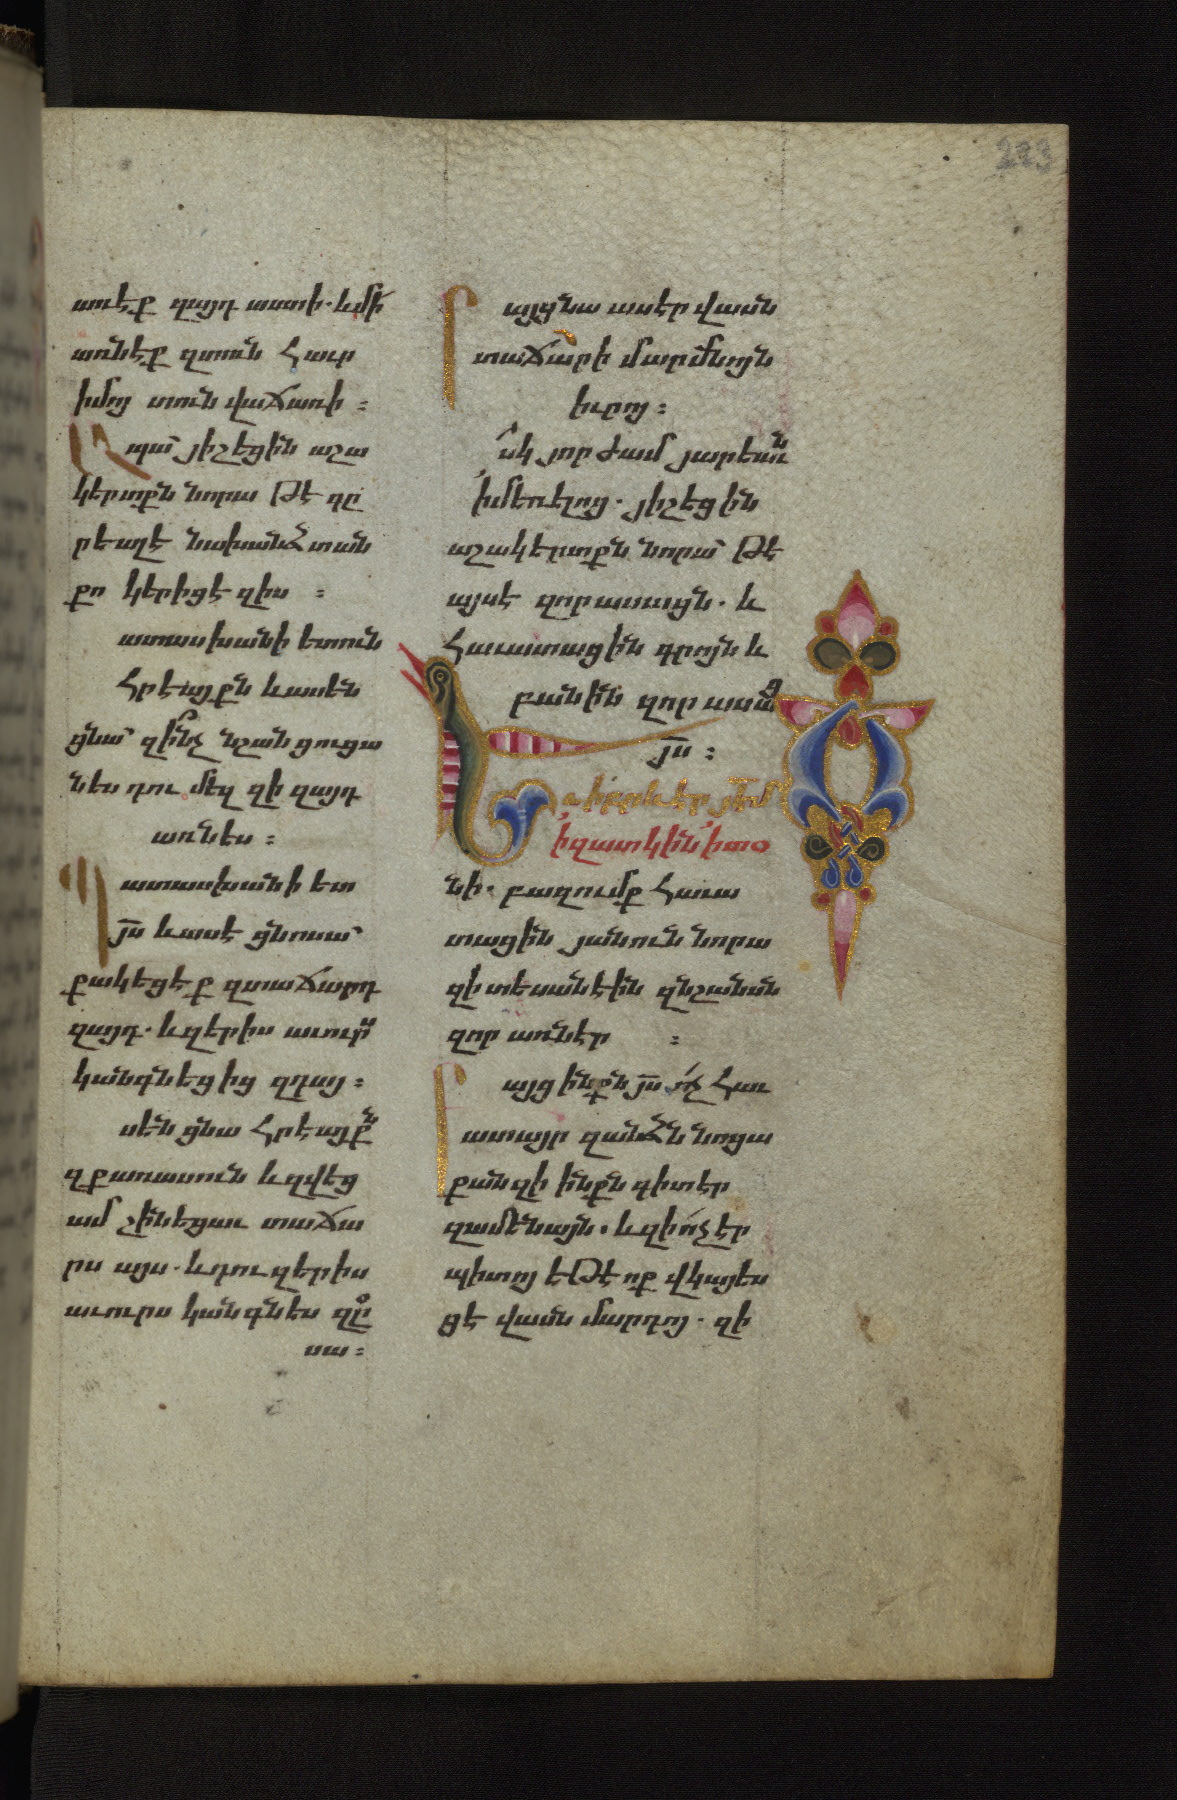 223
առէք զայդ աստի. և մի
առնէք զտուն հաւր
իմոյ տուն վաճառի :
Ապա յիշեցին աշա
կերտքն նորա թէ գը
րեալ է նախանձ տան
քո կերիցէ զիս :
ատասխանի ետուն
հրեայքն և ասեն
ցնա՝ զի՞նչ նշան ցուցա
նես դու մեզ զի զայդ
առնես :
Պատասխանի ետ
յս և ասէ ցնոսա՝
քակեցէք զտաճարդ
զայդ. և զերիս աւուրս
կանգնեցից զդայ :
սեն ցնա հրեայքն
զքառասուն և զվեց
ամ շինեցաւ տաճա
րս այս. և դու զերիս
աւուրս կանգնես զը
սա :
Բայց նա ասէր վասն
տաճարի մարմնոյն
իւրոյ :
սկ յորժամ յարեաւն
ի մեռելոց. յիշեցին
աշակերտքն նորա՝ թէ
այս է զոր ասացն. և
հաւատացին գրոյն և
բանին զոր ասաց
յս :
Եւ իբրև էր յեմ
ի զատկին ի տօ
նի. բազումք հաւա
տացին յանուն նորա
զի տեսանէին զնշանսն
զոր առնէր :
Բայց ինքն յս ոչ հաւ
ատայր զանձն նոցա
քանզի ինքն գիտէր
զամենայն. և զի ոչ էր
պիտոյ եթէ ոք վկայես
ցէ վասն մարդոյ. զի